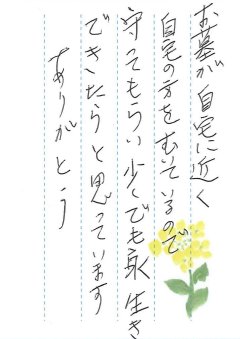 お墓が自宅に近く
自宅の方をむいているので
守ってもらい少しでも永く生き
できたらと思っています
ありがとう